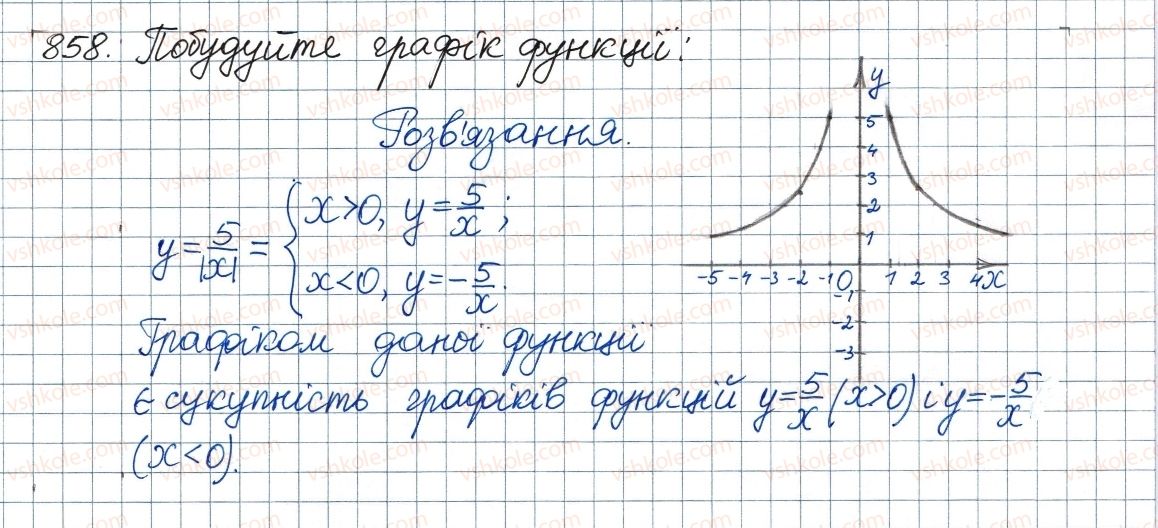 858. Побудуйте графік функції:
Розв'язання.
y = 5/|x| = { x>0, y = 5/x ;
x<0, y = -5/x.
Графіком даної функції
є сукупність графіків функцій y = 5/x (x>0) і y = -5/x
(x<0).
y
5
4
3
2
1
-5 -4 -3 -2 -1 0 1 2 3 4 x
-1
-2
-3
vshkole.com